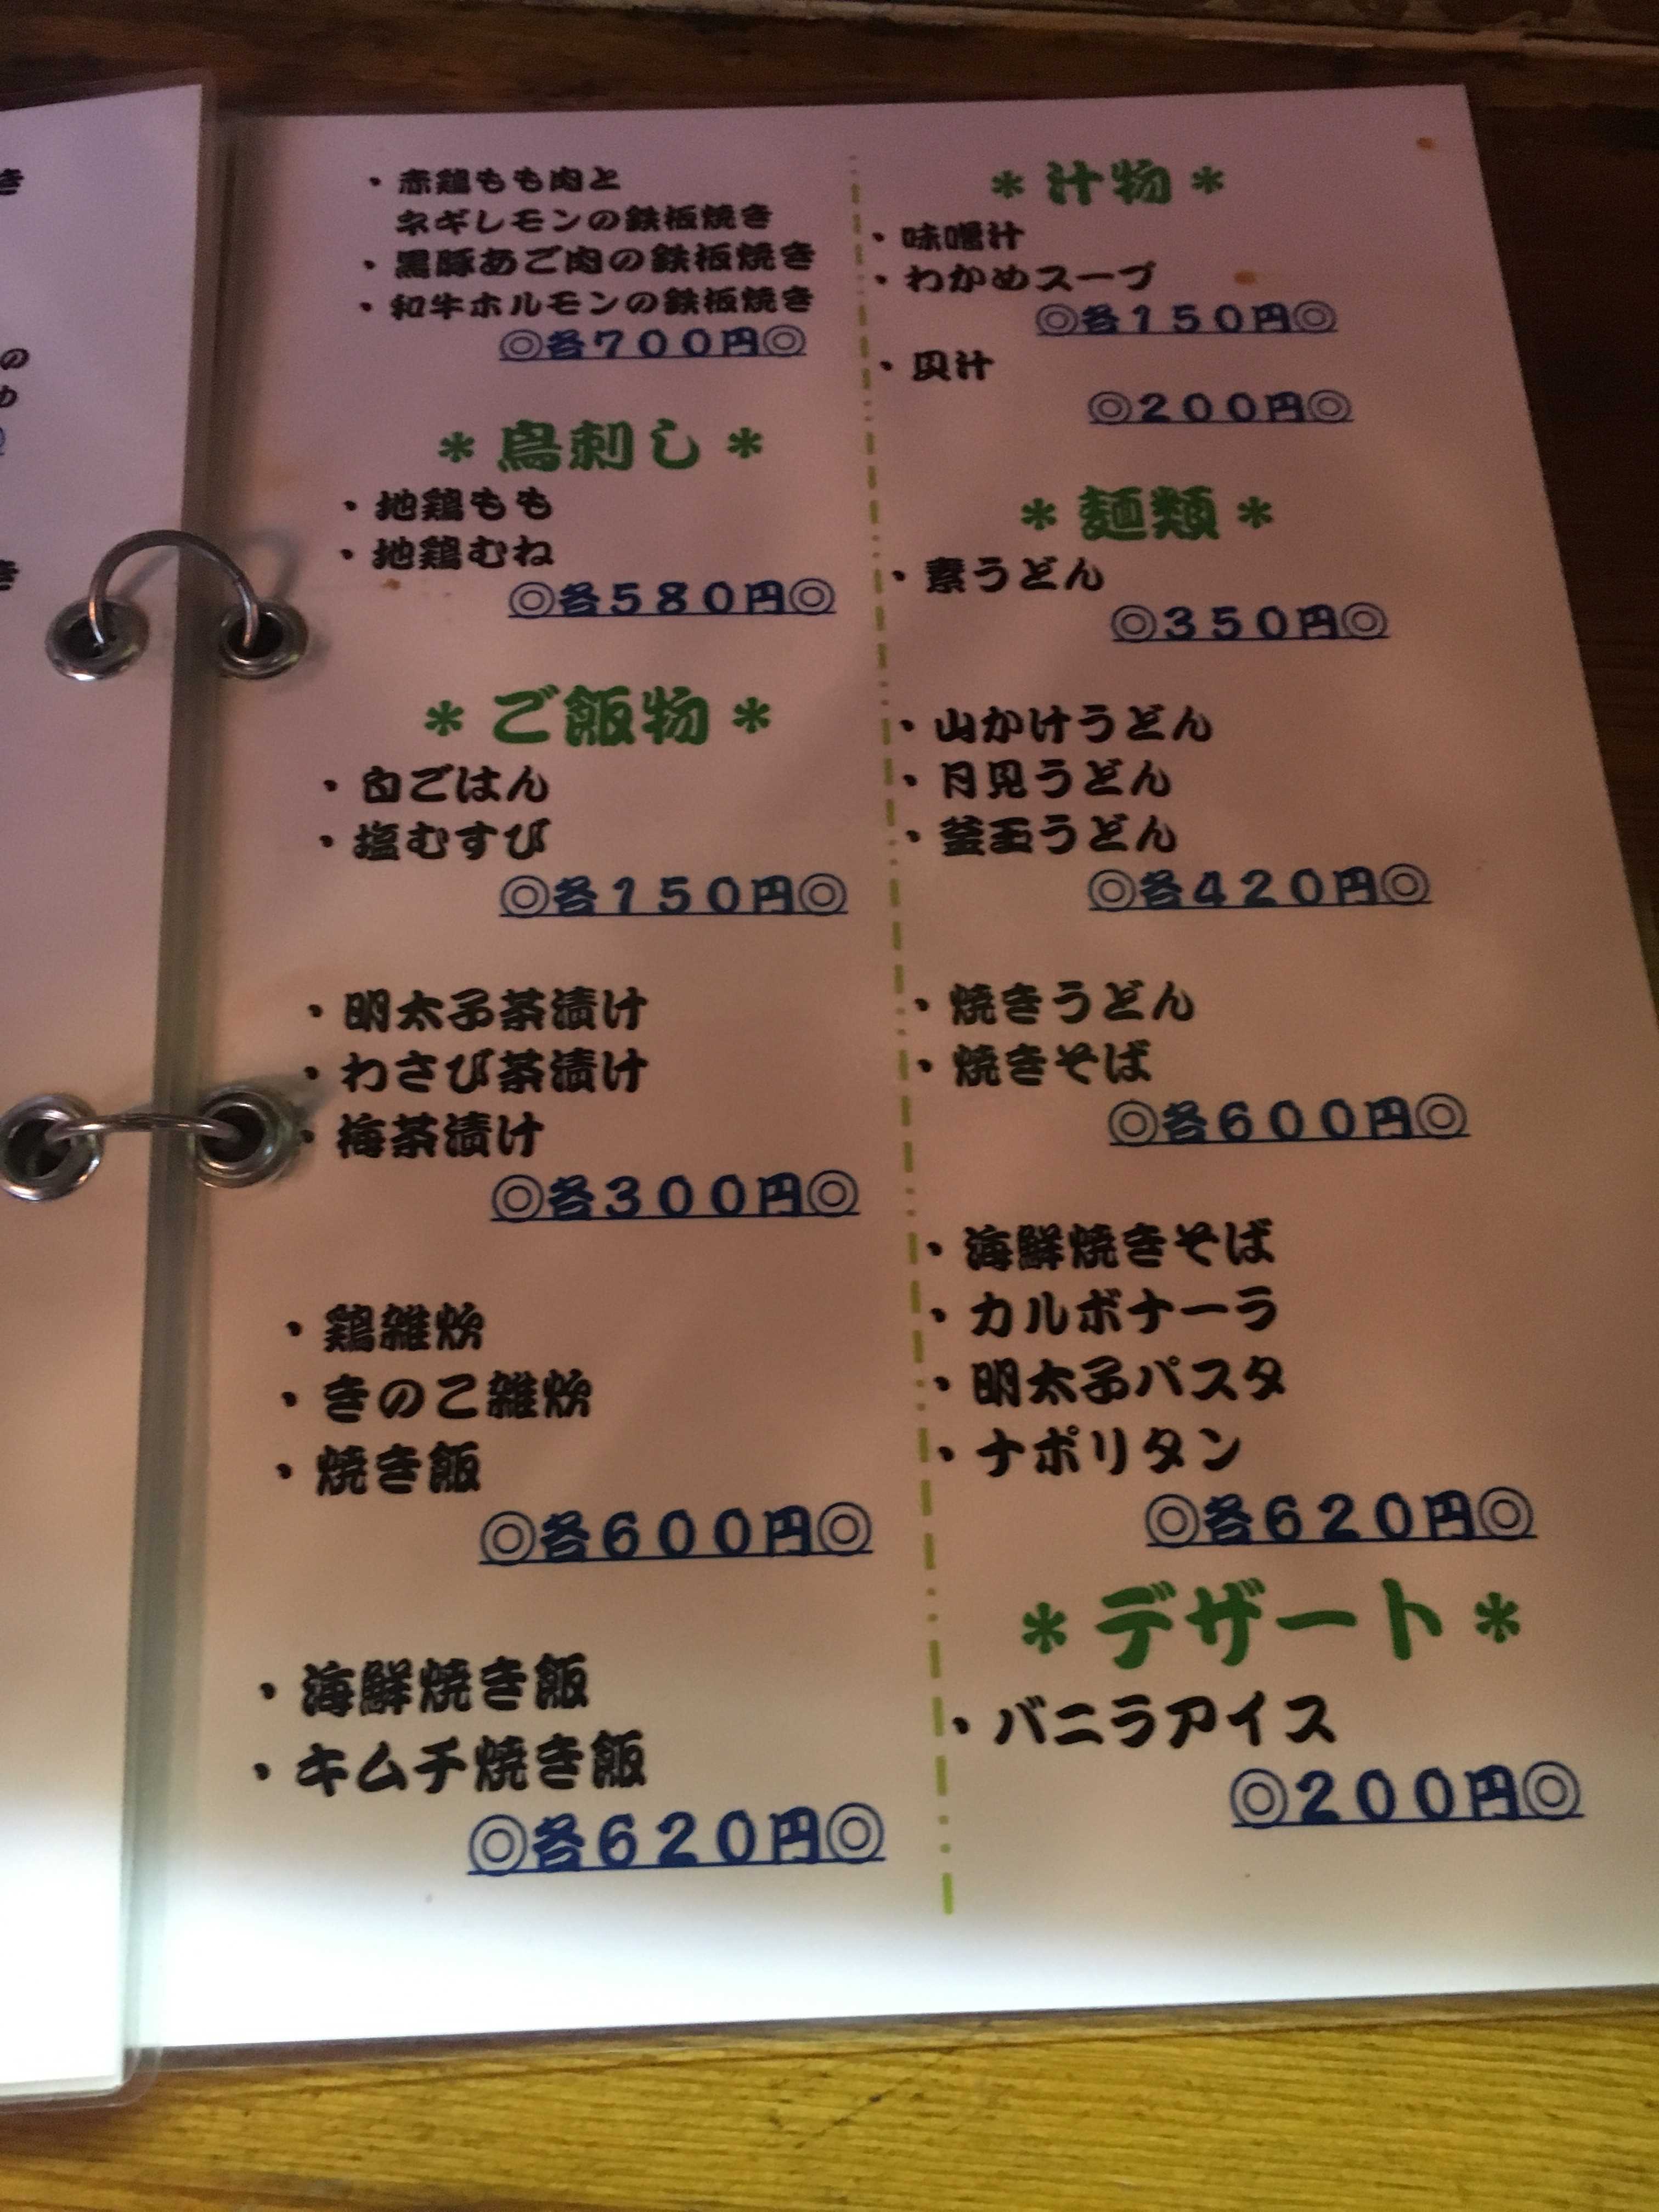 ・赤鶏もも肉と
ネギレモンの鉄板焼き
・黒豚あご肉の鉄板焼き
・和牛ホルモンの鉄板焼き
◎各700円◎
＊鳥刺し＊
・地鶏もも
・地鶏むね
◎各580円◎
＊ご飯物＊
・白ごはん
・塩むすび
◎各150円◎
・明太子茶漬け
・わさび茶漬け
・梅茶漬け
◎各300円◎
・鶏雑炊
・きのこ雑炊
・焼き飯
◎各600円◎
・海鮮焼き飯
・キムチ焼き飯
◎各620円◎
＊汁物＊
・味噌汁
・わかめスープ
◎各150円◎
・貝汁
◎200円◎
＊麺類＊
・素うどん
◎350円◎
・山かけうどん
・月見うどん
・釜玉うどん
◎各420円◎
・焼きうどん
・焼きそば
◎各600円◎
・海鮮焼きそば
・カルボナーラ
・明太子パスタ
・ナポリタン
◎各620円◎
＊デザート＊
・バニラアイス
◎200円◎